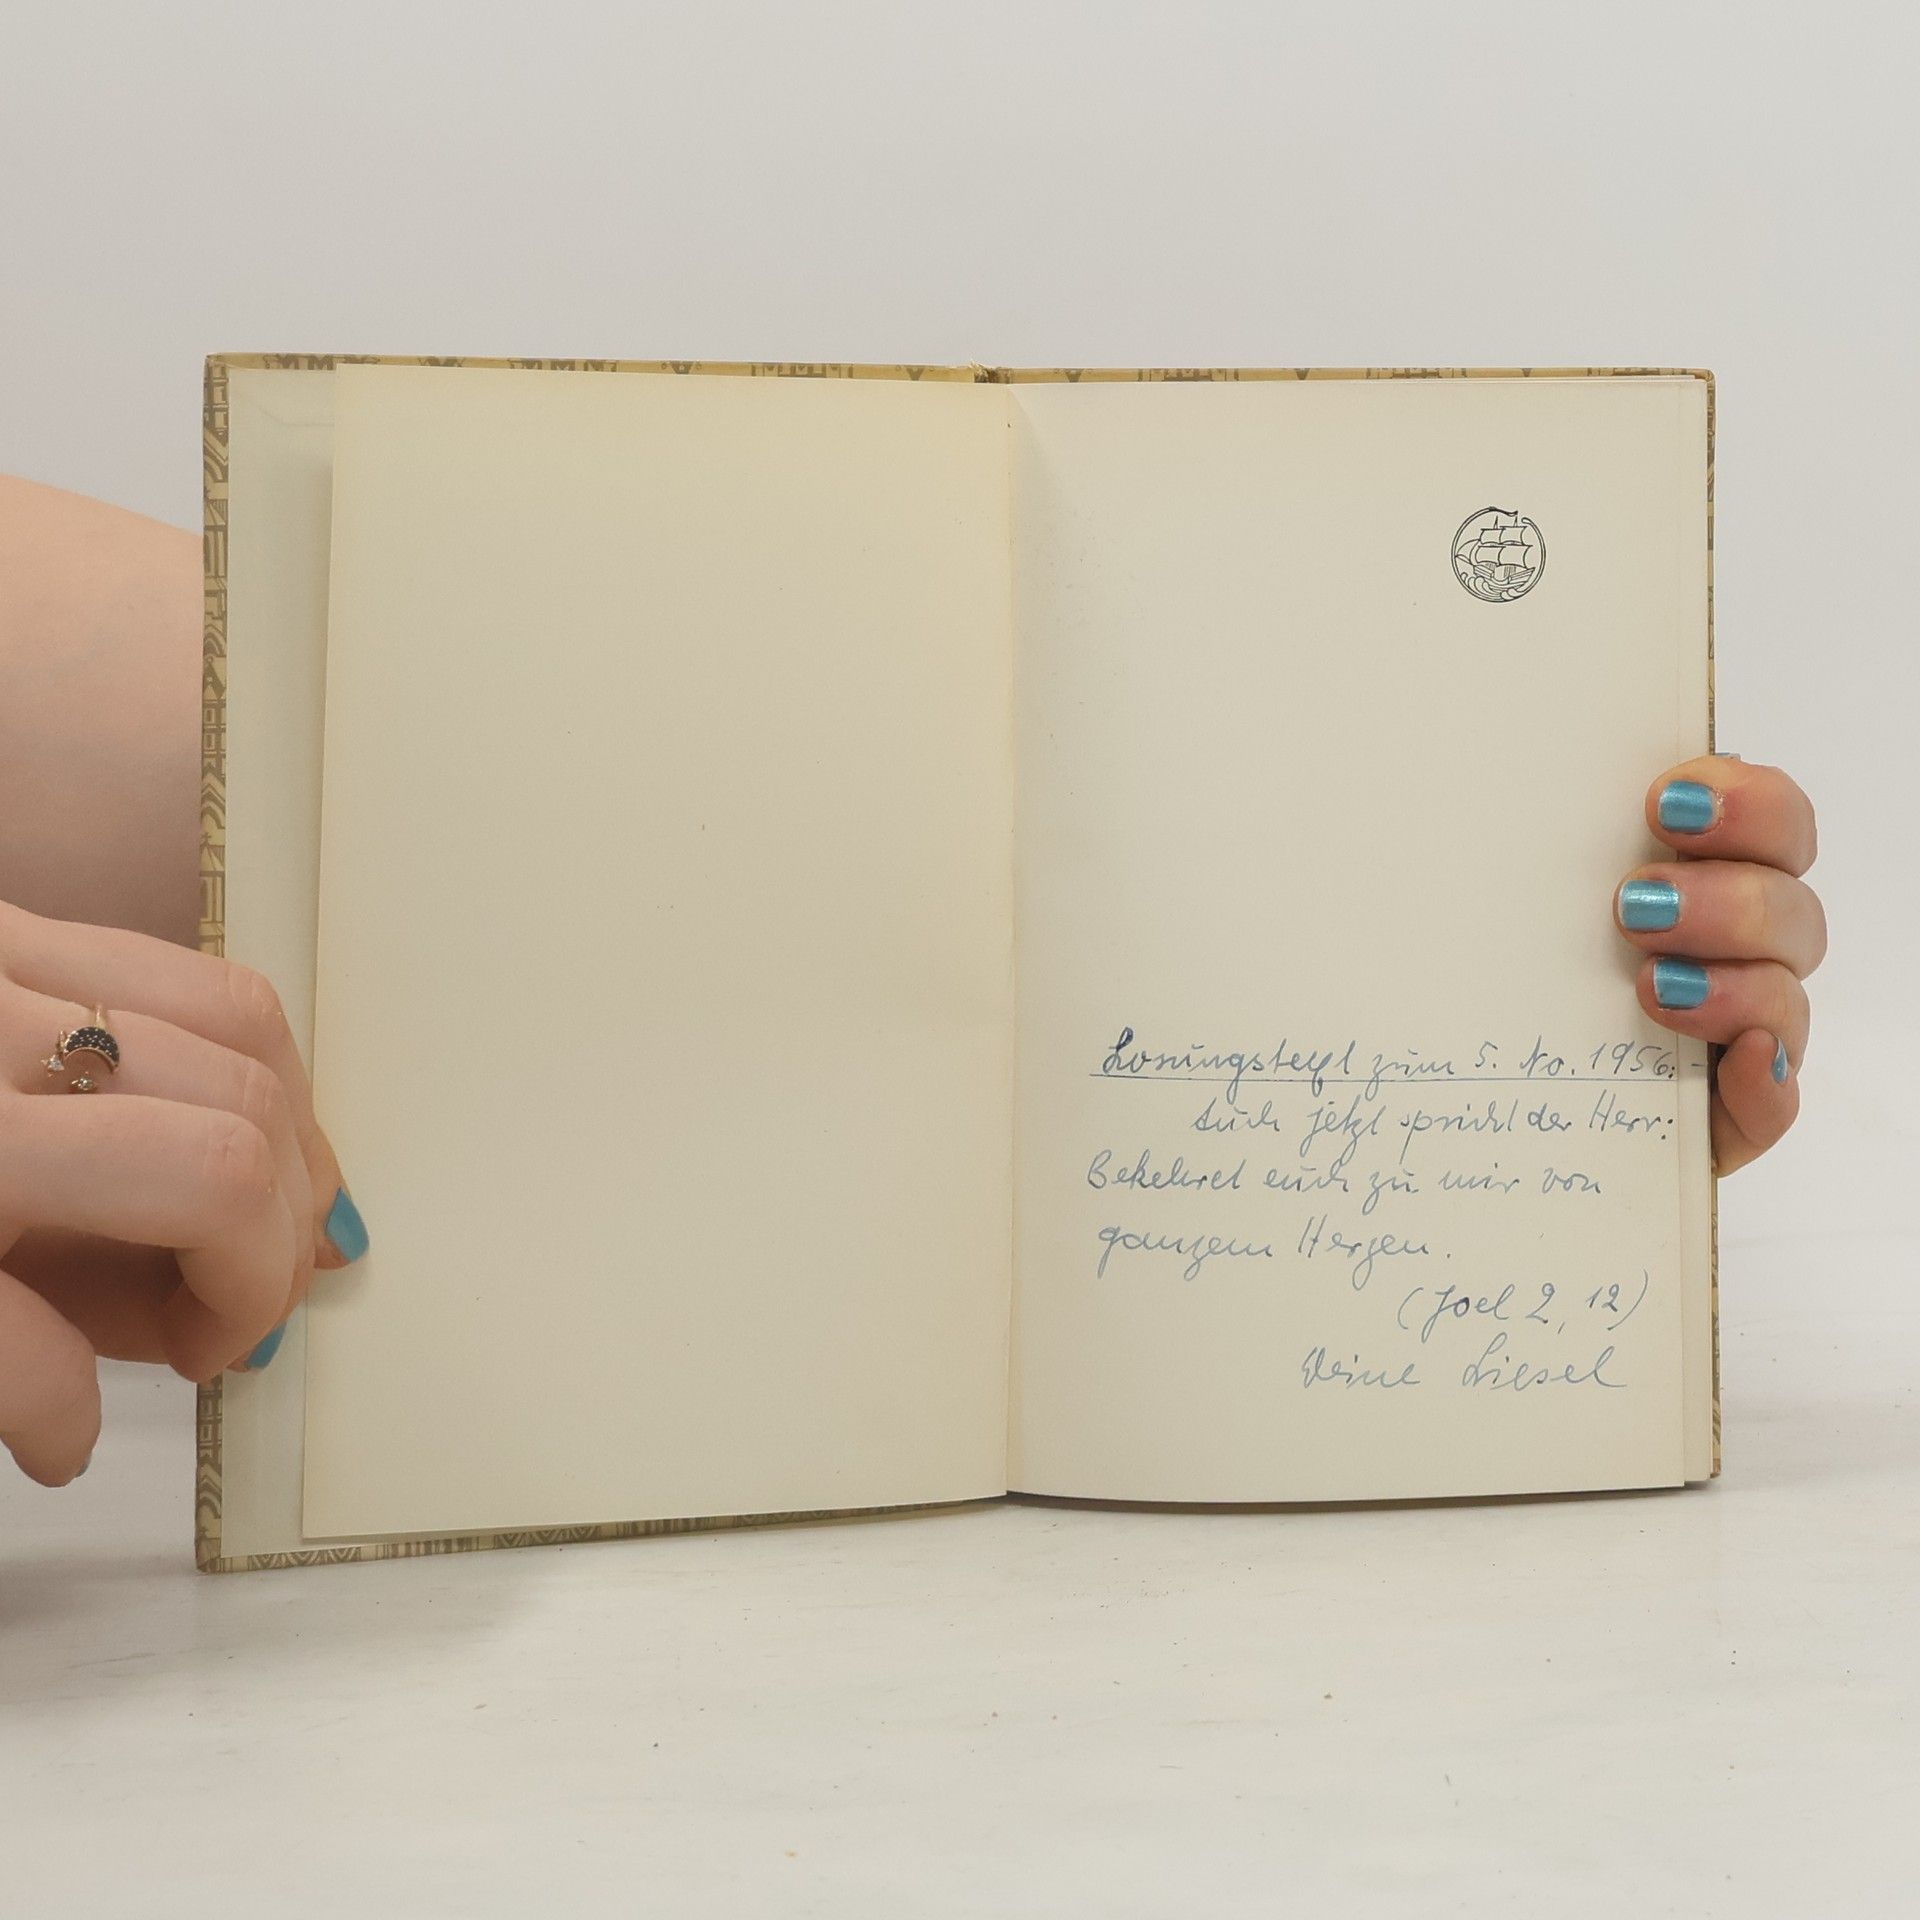 Losungstext zum 5. No. 1956: -
Auch jetzt spricht der Herr:
Bekehret euch zu mir von
ganzem Herzen.
(Joel 2, 12)
Deine Liesel